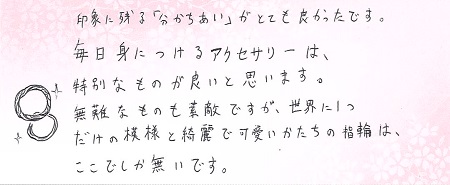 印象に残る「分かちあい」がとても良かったです。
毎日身につけるアクセサリーは、
特別なものが良いと思います。
無難なものも素敵ですが、世界に1つ
だけの模様と綺麗で可愛いかたちの指輪は、
ここでしか無いです。